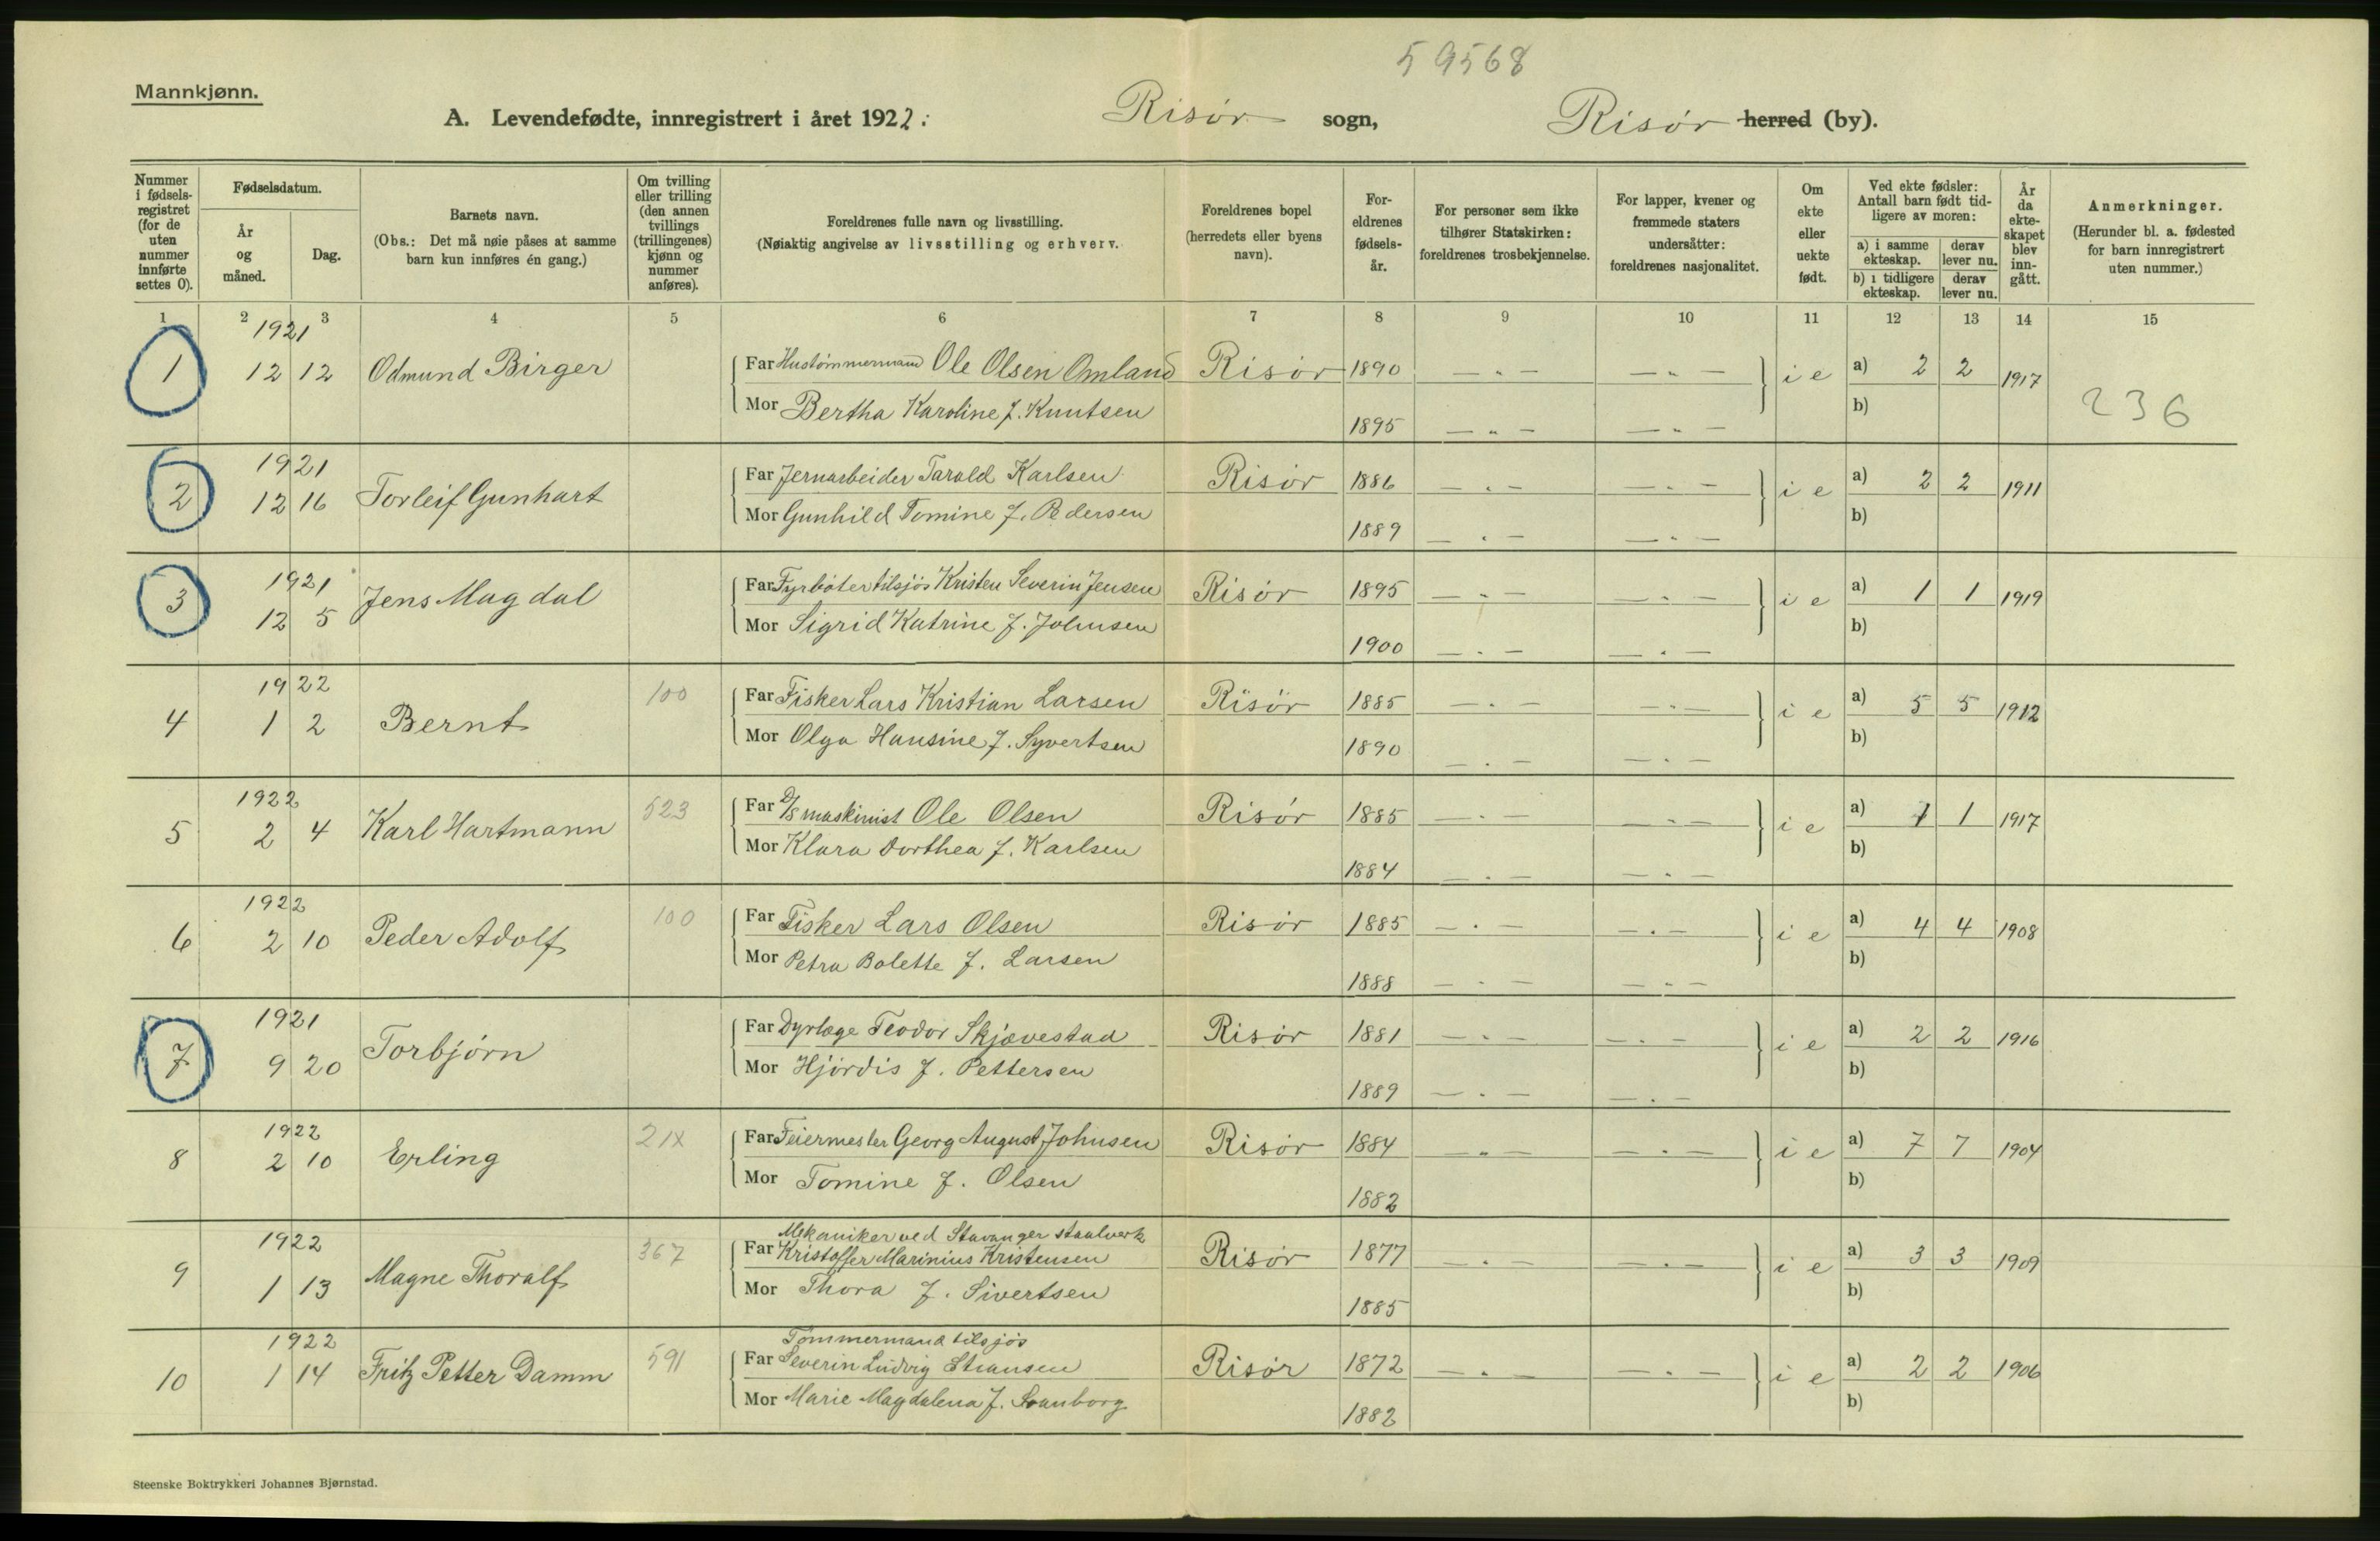 59568
Mannkjønn.
A. Levendefødte, innregistrert i året 1922. Risør sogn, Risør herred (by).
Nummer i fødsels-registret (for de uten nummer innførte settes 0).
Fødselsdatum.
År og måned.
Dag.
Barnets navn.
(Obs.: Det må nøie påses at samme barn kun innføres én gang.)
Om tvilling eller trilling (den annen tvillings (trillingenes) kjønn og nummer anføres).
Foreldrenes fulle navn og livsstilling.
(Nøiaktig angivelse av livsstilling og erhverv.
Foreldrenes bopel (herredets eller byens navn).
For-eldrenes fødsels-år.
For personer som ikke tilhører Statskirken: foreldrenes trosbekjennelse.
For lapper, kvener og fremmede staters undersåtter: foreldrenes nasjonalitet.
Om ekte eller uekte født.
Ved ekte fødsler: Antall barn født tid-ligere av moren:
a) i samme ekteskap.
derav lever nu.
b) i tidligere ekteskap.
derav lever nu.
År da ekte-skapet blev inn-gått.
Anmerkninger.
(Herunder bl. a. fødested for barn innregistrert uten nummer.)
1 2 3 4 5 6 7 8 9 10 11 12 13 14 15
1921
1 12 12 Odmund Birger Far Hustømmermand Ole Olsen Omland Risør 1890 — " — — " — i e a) 2 2 1917
Mor Bertha Karoline f. Knutsen 1895 — " — — " — b) 236
1921
2 12 16 Torleif Gunhart Far Jernarbeider Tarald Karlsen Risør 1886 — " — — " — i e a) 2 2 1911
Mor Gunhild Tomine f. Pedersen 1889 — " — — " — b)
1921
3 12 5 Jens Magdal Far Fyrbøter tilsjøs Kristen Severin Jensen Risør 1895 — " — — " — i e a) 1 1 1919
Mor Sigrid Katrine f. Johnsen 1900 — " — — " — b)
1922
4 1 2 Bernt 100 Far Fisker Lars Kristian Larsen Risør 1885 — " — — " — i e a) 5 5 1912
Mor Olga Hansine f. Syvertsen 1890 — " — — " — b)
1922
5 2 4 Karl Hartmann 523 Far D/s maskinist Ole Olsen Risør 1885 — " — — " — i e a) 1 1 1917
Mor Klara Dorthea f. Karlsen 1884 — " — — " — b)
1922
6 2 10 Peder Adolf 100 Far Fisker Lars Olsen Risør 1885 — " — — " — i e a) 4 4 1908
Mor Petra Bolette f. Larsen 1888 — " — — " — b)
1921
7 9 20 Torbjørn Far Dyrlæge Teodor Skjævestad Risør 1881 — " — — " — i e a) 2 2 1916
Mor Hjørdis f. Pettersen 1889 — " — — " — b)
1922
8 2 10 Erling 21X Far Feiermester Georg August Johnsen Risør 1884 — " — — " — i e a) 7 7 1904
Mor Tomine f. Olsen 1882 b)
1922 Mekaniker ved Stavanger staalverk
9 1 13 Magne Thoralf 367 Far Kristoffer Marinius Kristensen Risør 1877 — " — — " — i e a) 3 3 1909
Mor Thora f. Sivertsen 1885 b)
1922 Tømmermand tilsjøs
10 1 14 Fritz Petter Damm 591 Far Severin Ludvig Risør 1872 — " — — " — i e a) 2 2 1906
Mor Marie Magdalena f. Svanborg 1882 b)
Steenske Boktrykkeri Johannes Bjørnstad.